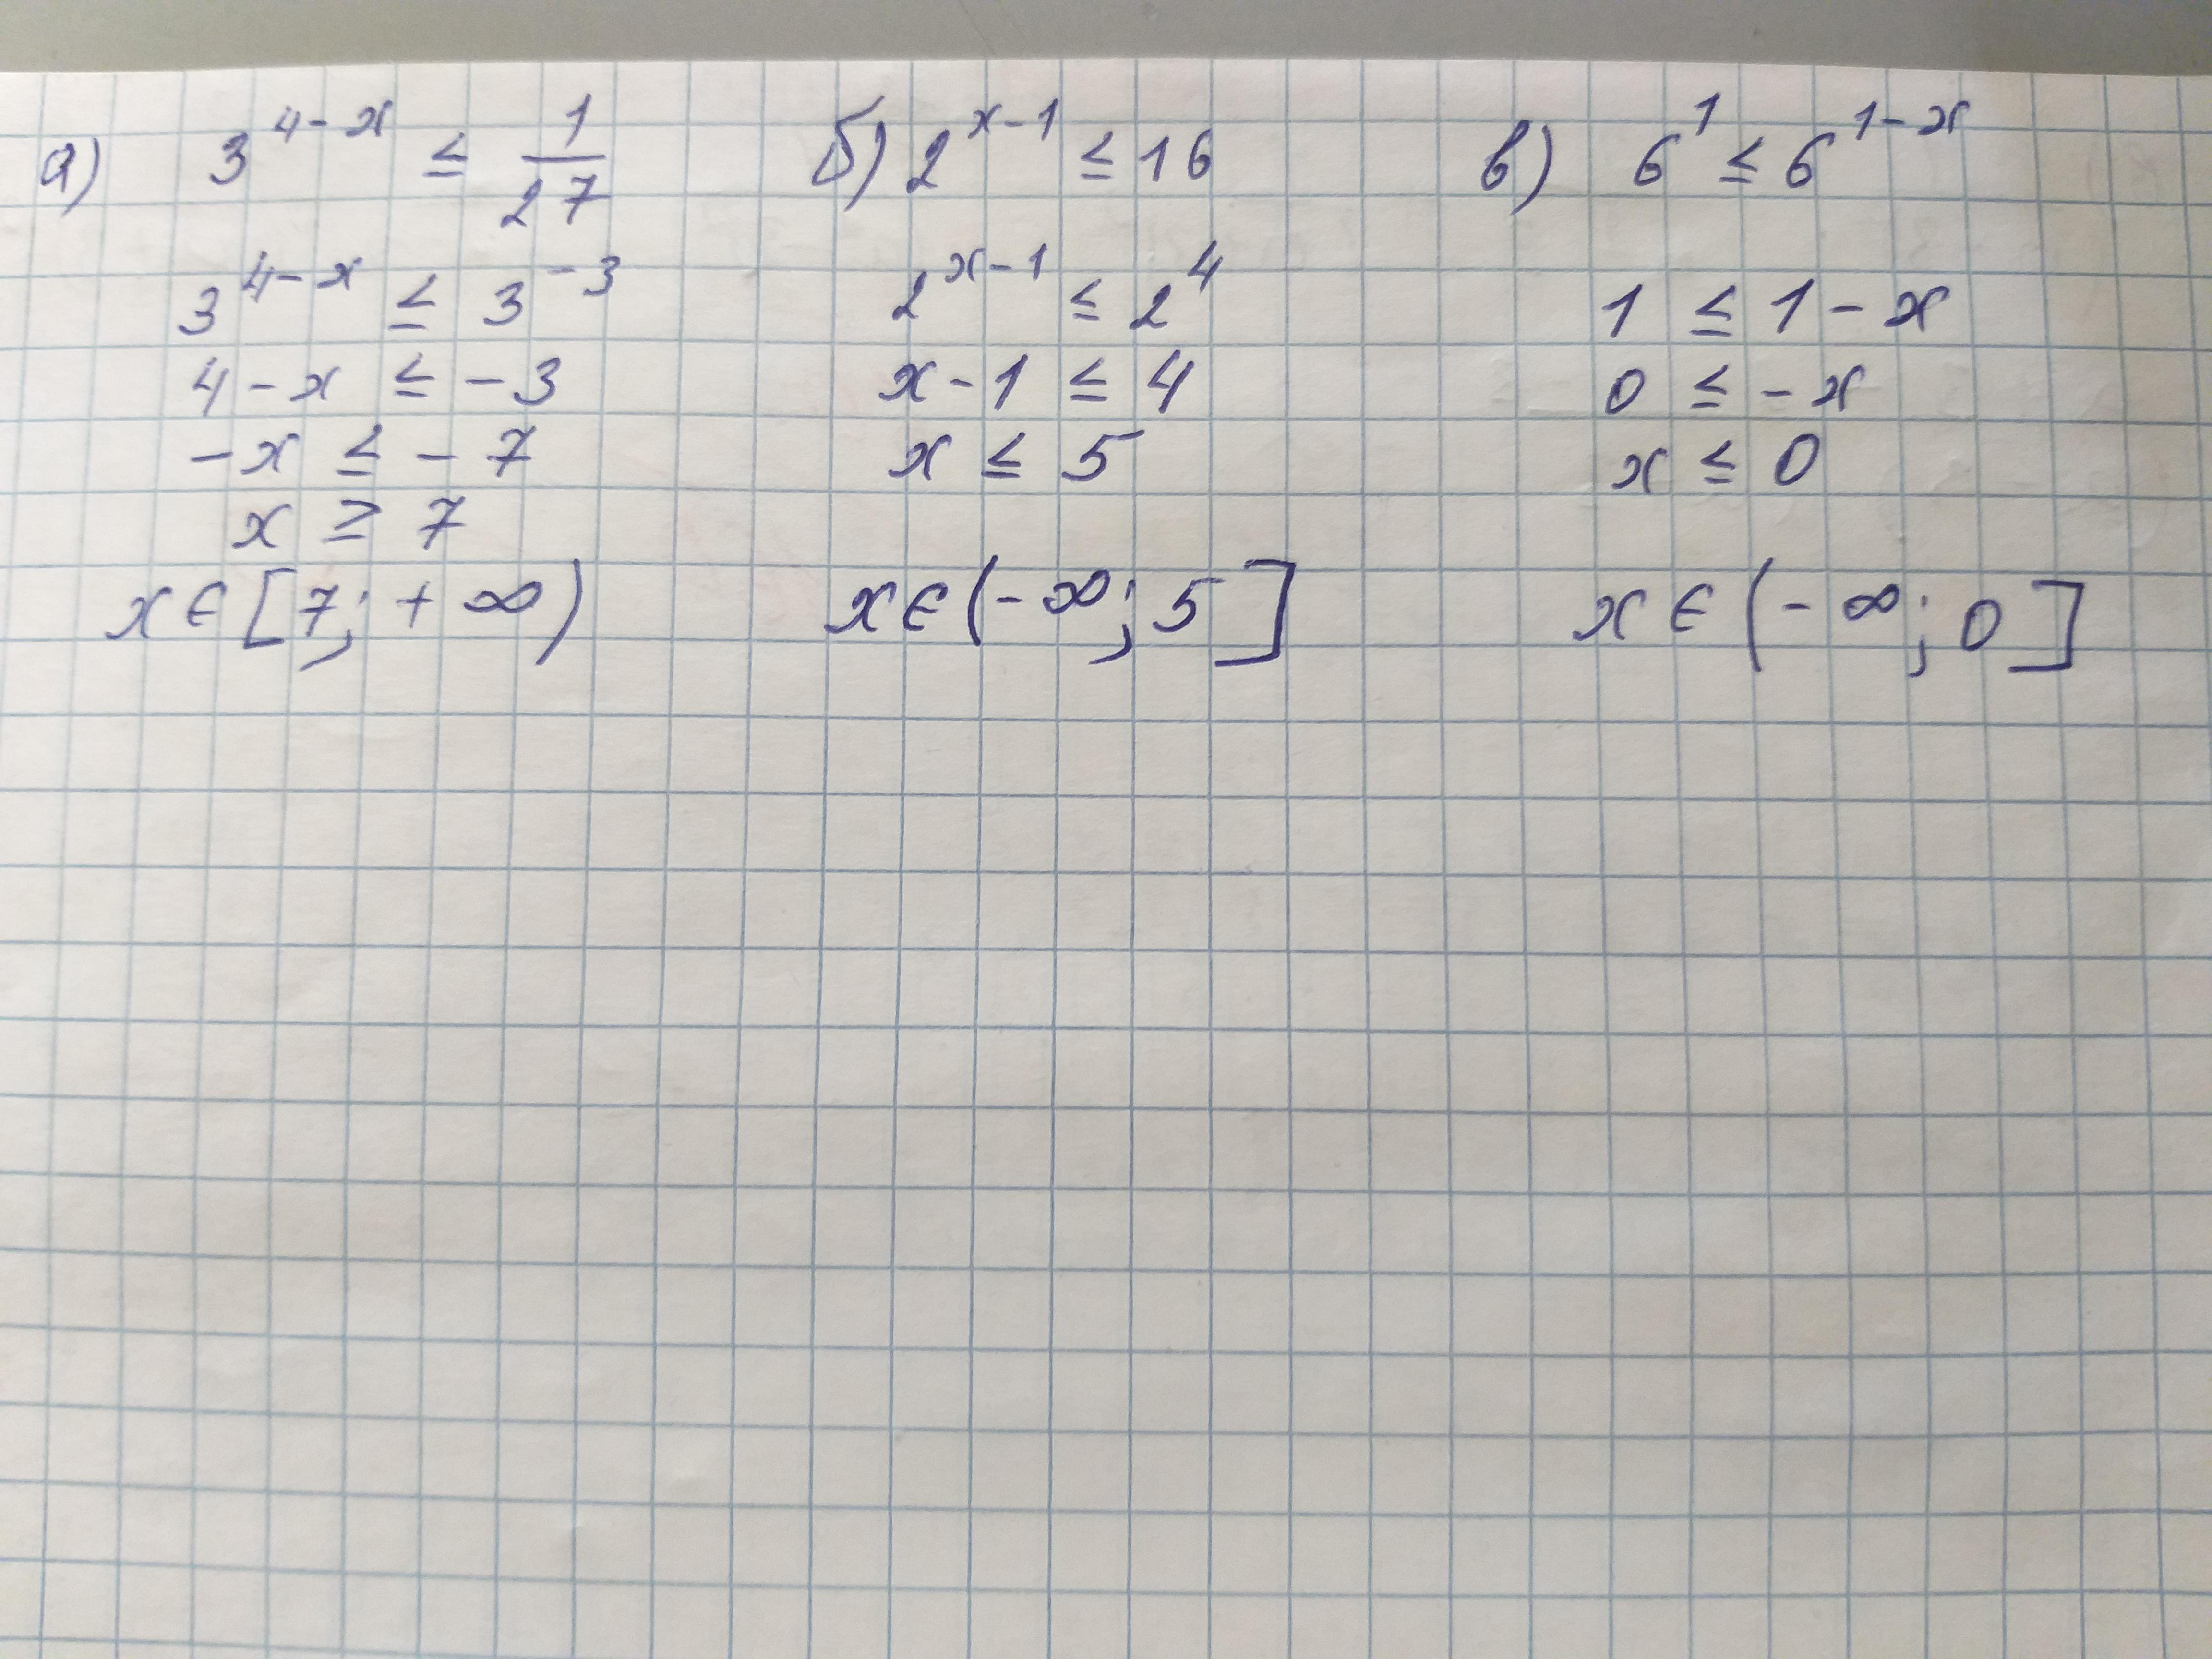 а) 3^{4-x} ≤ 1/27
3^{4-x} ≤ 3^{-3}
4-x ≤ -3
-x ≤ -7
x ≥ 7
x ∈ [7; +∞)
б) 2^{x-1} ≤ 16
2^{x-1} ≤ 2^4
x-1 ≤ 4
x ≤ 5
x ∈ (-∞; 5]
в) 6^1 ≤ 6^{1-x}
1 ≤ 1-x
0 ≤ -x
x ≤ 0
x ∈ (-∞; 0]